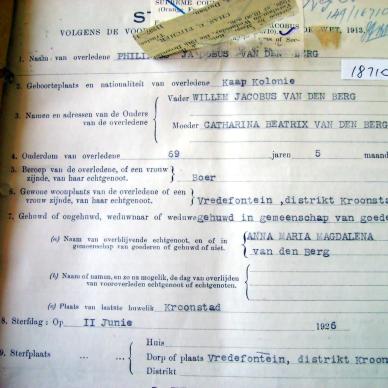 SUPREME COU
(Oran
S
VOLGENS DE VOO JACOBUS DE WET, 1913
1. Naam van overledene PHILIP JACOBUS VAN DEN BERG
1871C
2. Geboorteplaats en nationaliteit van overledene Kaap Kolonie
3. Namen en adressen van de Ouders van de overledene
Vader WILLEM JACOBUS VAN DEN BERG
Moeder CATHARINA BEATRIX VAN DEN BERG
4. Ouderdom van overledene 69 jaren 5 maand
5. Beroep van de overledene, of een vrouw
zijnde, van haar echtgenoot. Boer
6. Gewone woonplaats van de overledene of een
vrouw zijnde, van haar echtgenoot. Vredefontein, distrikt Kroonsta
7. Gehuwd of ongehuwd, weduwnaar of weduwe gehuwd in gemeenschap van goede
(a) Naam van overblijvende echtgenoot, en of in
gemeenschap van goederen of gehuwd of niet.
ANNA MARIA MAGDALENA
van den Berg
(b) Naam of namen, en zo na mogelik, de dag van overlijden
van vooroverleden echtgenoot of echtgenoten.
(c) Plaats van laatste huwelik Kroonstad
8. Sterfdag: Op II Junie 1926
9. Sterfplaats ... ...
Huis
Dorp of plaats Vredefontein, distrikt Kroon
Distrikt